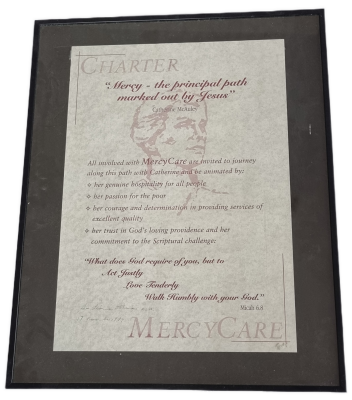 CHARTER
"Mercy - the principal path
marked out by Jesus"
Catherine McAuley
All involved with MercyCare are invited to journey
along this path with Catherine and be animated by:
❖ her genuine hospitality for all people
❖ her passion for the poor
❖ her courage and determination in providing services of
excellent quality
❖ her trust in God's loving providence and her
commitment to the Scriptural challenge:
"What does God require of you, but to
Act Justly
Love Tenderly
Walk Humbly with your God."
Micah 6:8
MERCYCARE